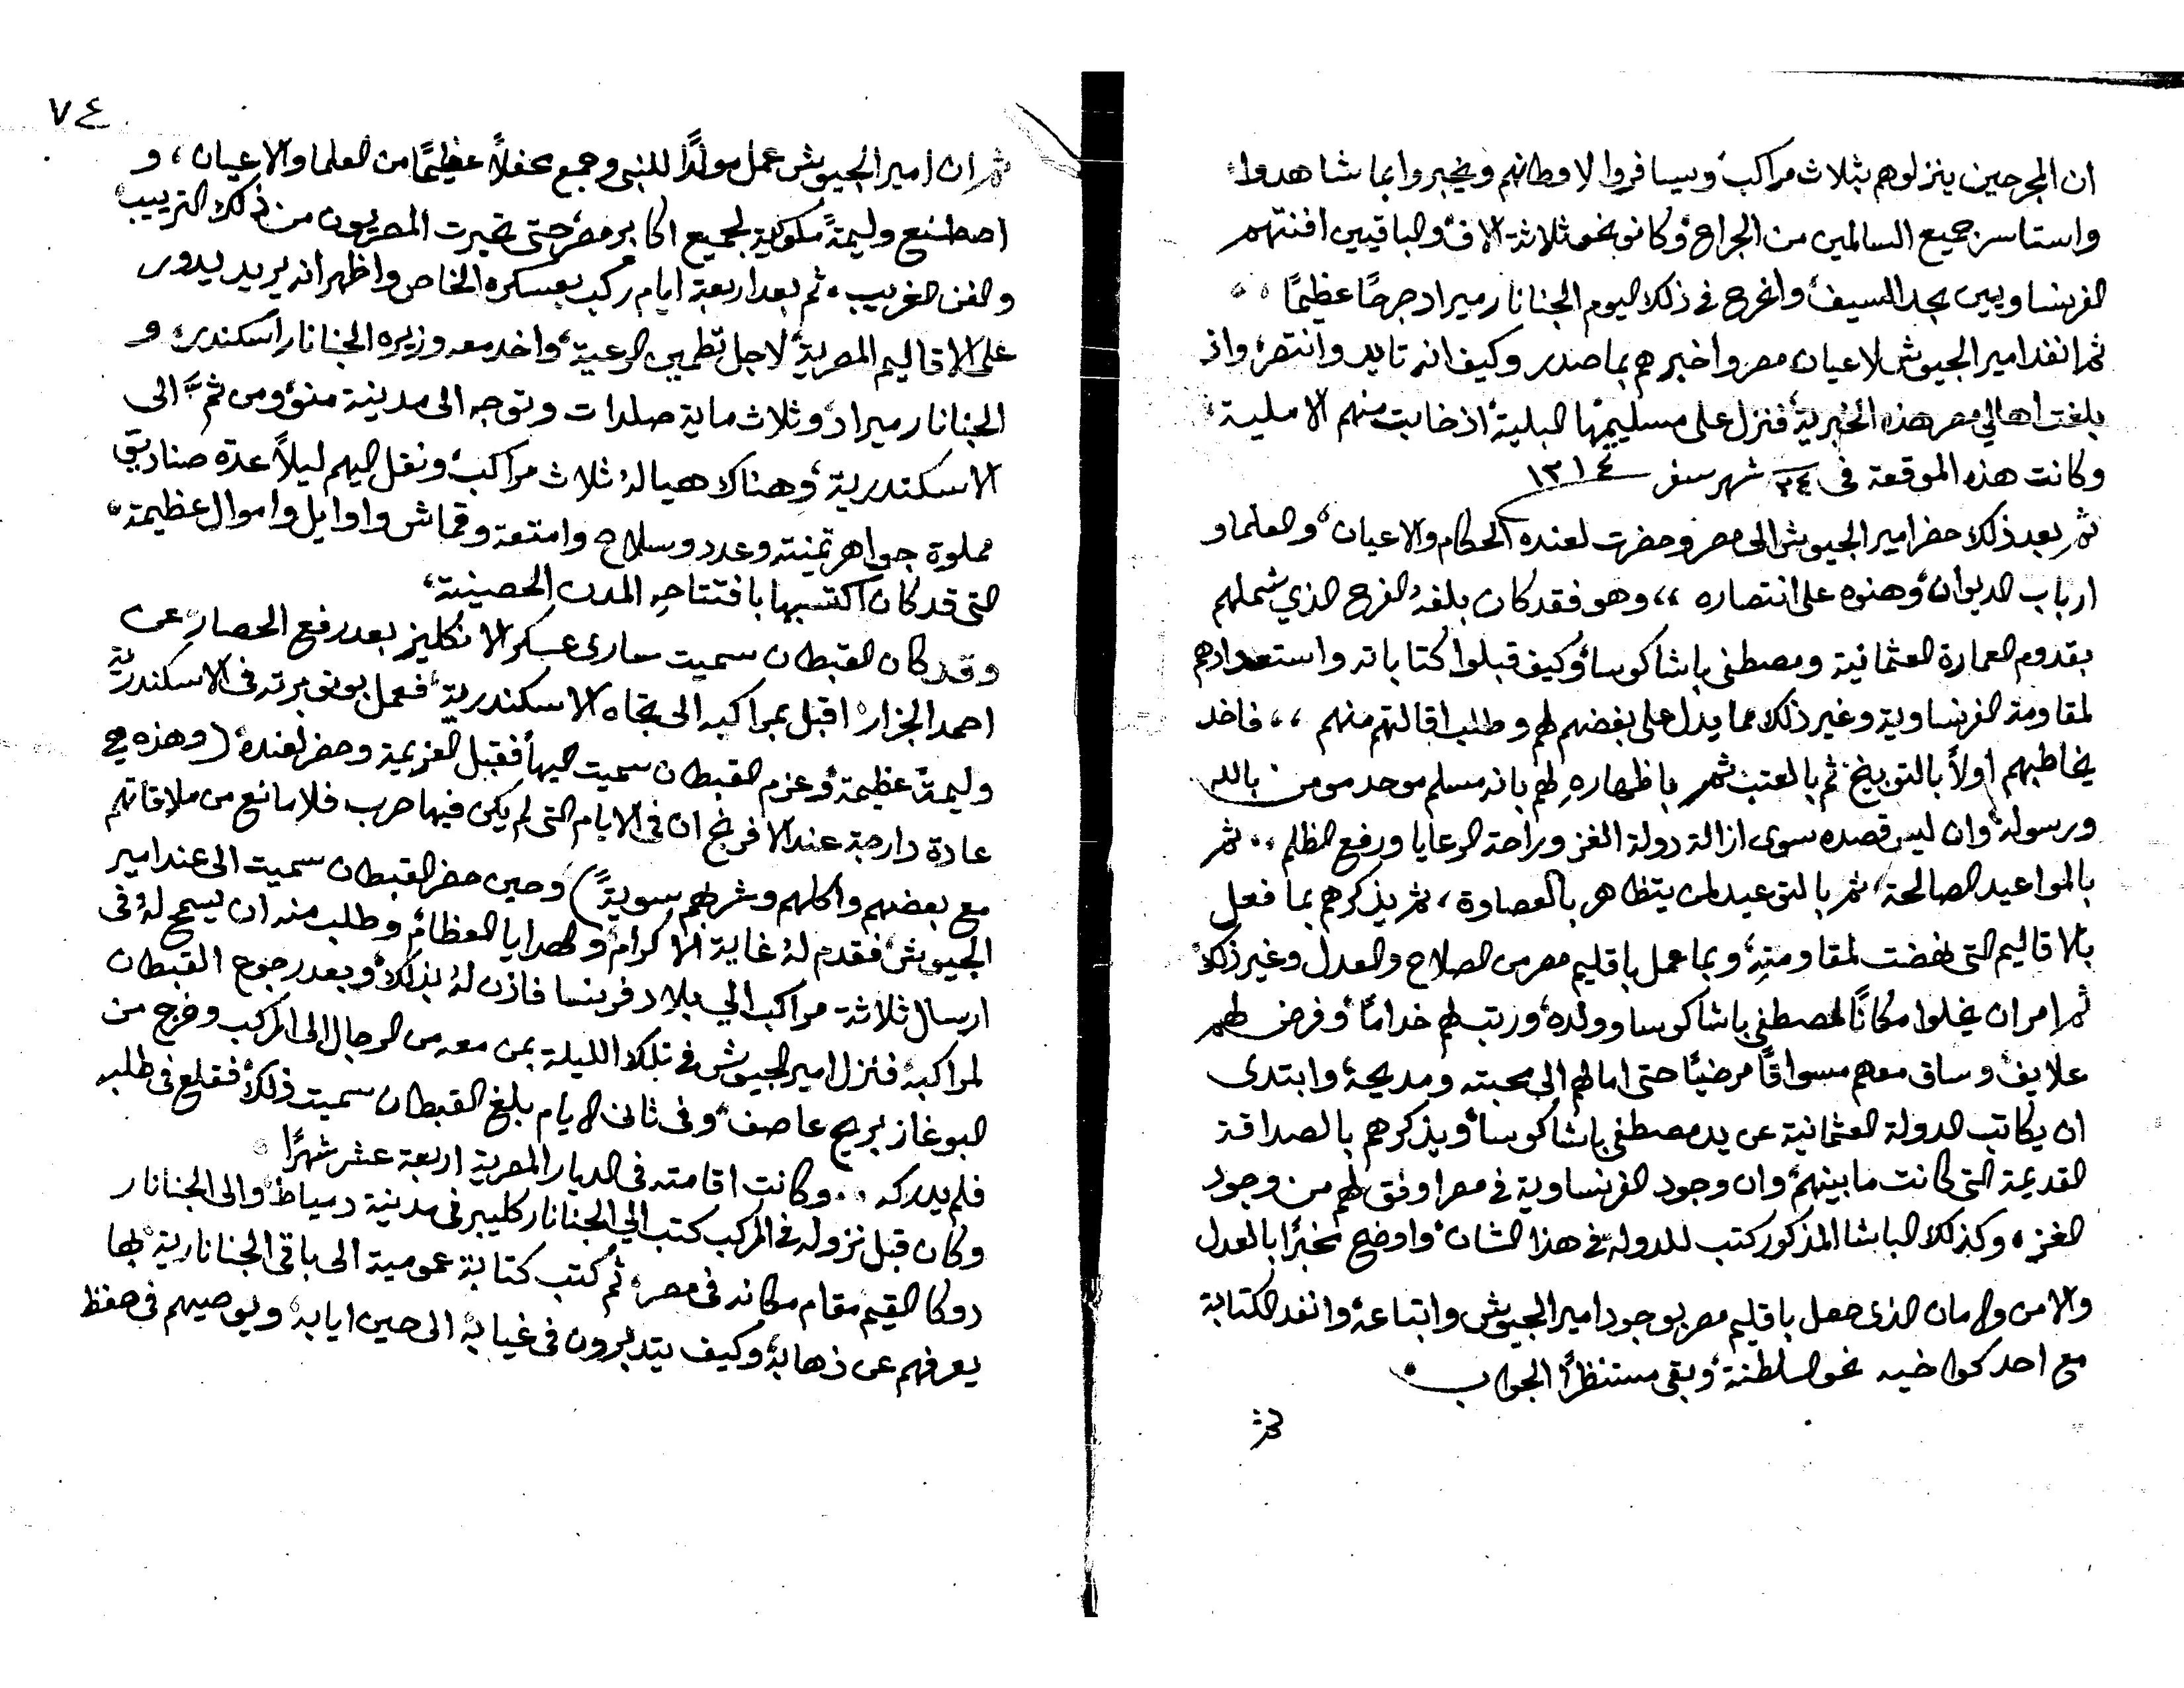 ان المجرحين ينزلوهم بثلاث مراكب وسيافروا لاوطانهم ويخبروا بما شاهدوا
واستاسر جميع السالمين من الجراح وكانو نحو ثلاثة الاف والباقيين افنتهم
الفرنساويين بحد السيف وانجرح فى ذلك اليوم الجنانار ميراد جرحًا عظيمًا
ثم انفد امير الجيوش لاعيان مصر واخبرهم بما صدر وكيف انه تايد وانتصر واذ
بلغت اهالي مصر هذه الخبرية فنزل على مسليمنها البلية اذ خابت منهم الاملية
وكانت هذه الموقعة فى ٢٤ شهر سفر ١٢١٤
ثم بعد ذلك حضر امير الجيوش الى مصر وحضرت لعنده الحكام والاعيان والعلما و
ارباب الديوان وهنوه على انتصاره ،، وهو فقد كان بلغهُ الفرح الذي شملهم
بقدوم العمارة العثمانية ومصطفى باشا كوسا وكيف قبلوا كتاباته واستعدادهم
لمقاومة الفرنساوية وغير ذلك مما يدل على بغضهم لهم وطلب اقالتهم منهم ،، فاخد
يخاطبهم اولاً بالتوبيخ ثم بالعتب ثم باظهارهِ لهم بانه مسلم موحد مومن بالله
ورسوله وان ليس قصده سوى ازالة دولة الغز وراحة الرعايا ورفع المظلم ،، ثم
بالمواعيد الصالحة ثم بالتوعيد لمن يتظاهر بالعصاوة، ثم يذكرهم بما فعل
بالاقاليم التى نهضت لمقاومتهِ وبما عمل باقليم مصر من الصلاح والعدل وغير ذلك
ثم امر ان يخلوا مكانًا لمصطفى باشا كوسا وولده ورتب لهم خدامًا وفرض لهم
علايف وساق معهم مسواقًا مرضيًا حتى امالهم الى محبته ومديحهِ وابتدى
ان يكاتب الدولة العثمانية عن يد مصطفى باشا كوسا ويذكرهم بالصداقة
القديمة التى كانت ما بينهم وان وجود الفرنساوية فى مصر اوفق لهم من وجود
الغز، وكذلك الباشا المذكور كتب للدوله فى هذا الشان واوضح مخبرًا بالعدل
والامن والامان الذى حصل باقليم مصر بوجود امير الجيوش واتباعهُ وانفد الكتابة
مع احد كواخيه نحو السلطنة وبقى مستنظراً الجواب
ثم
٧٤
ثم ان امير الجيوش عمل مولدًا للنبى وجمع محفلاً عظيمًا من العلما والاعيان، و
اصطنع وليمةً ملوكية لجميع اكابر مصر حتى تحيرت المصريون من ذلك الترييب
والفن الغريب، ثم بعد اربعة ايام ركب بعسكره الخاص واظهر انه يريد يدور
على الاقاليم المصرية لاجل تطمين الرعية، واخد معه وزيره الجنانار اسكندر و
الجنانار ميراد وثلاث ماية صلدات وتوجه الى مدينة منوف ومن ثمَّ الى
الاسكندرية، وهناك هيا لهُ ثلاث مراكب، ونقل اليهم ليلاً عدة صناديق
مملوة جواهر ثمينته وعدد وسلاح وامتعة وقماش واوايل واموال عظيمة
التى قد كان اكتسبها بافتتاحهِ المدن الحصينة،
وقد كان القبطان سميت سارى عسكر الانكليز بعد رفع الحصار عن
احمد الجزار اقبل بمراكبه الى تجاه الاسكندرية، فعمل بونوبرته فى الاسكندرية
وليمة عظيمة وعزم القبطان سميت اليها فقبل العزيمة وحضر لعنده (وهذه هي
عادة دارجة عند الافرنج ان فى الايام التى لم يكن فيها حرب فلا مانع من ملاقاتهم
مع بعضهم واكلهم وشربهم سويةً) وحين حضر القبطان سميت الى عند امير
الجيوش فقدم لهُ غاية الاكرام والهدايا العظام وطلب منه ان يسمح لهُ فى
ارسال ثلاثة مراكب الي بلاد فرنسا فاذن لهُ بذلك وبعد رجوع القبطان
لمراكبهِ فنزل امير الجيوش فى تلك الليلة بمن معه من الرجال الى المركب وخرج من
البوغاز بريح عاصف وفى ثانى الايام بلغ القبطان سميت ذلك فقلع فى طلبه
فلم يدركه ،، وكانت اقامته فى الديار المصرية اربعة عشر شهرًا
وكان قبل نزوله فى المركب كتب الي الجنانار كليبر فى مدينة دمياط والى الجنانار
دوكا القيم مقام مكانه فى مصر، ثم كتب كتابة عمومية الى باقى الجنانارية بها
يعرفهم عن ذهابهُ وكيف يتدبرون فى غيابهُ الى حين ايابهُ ويوصيهم فى حفظ